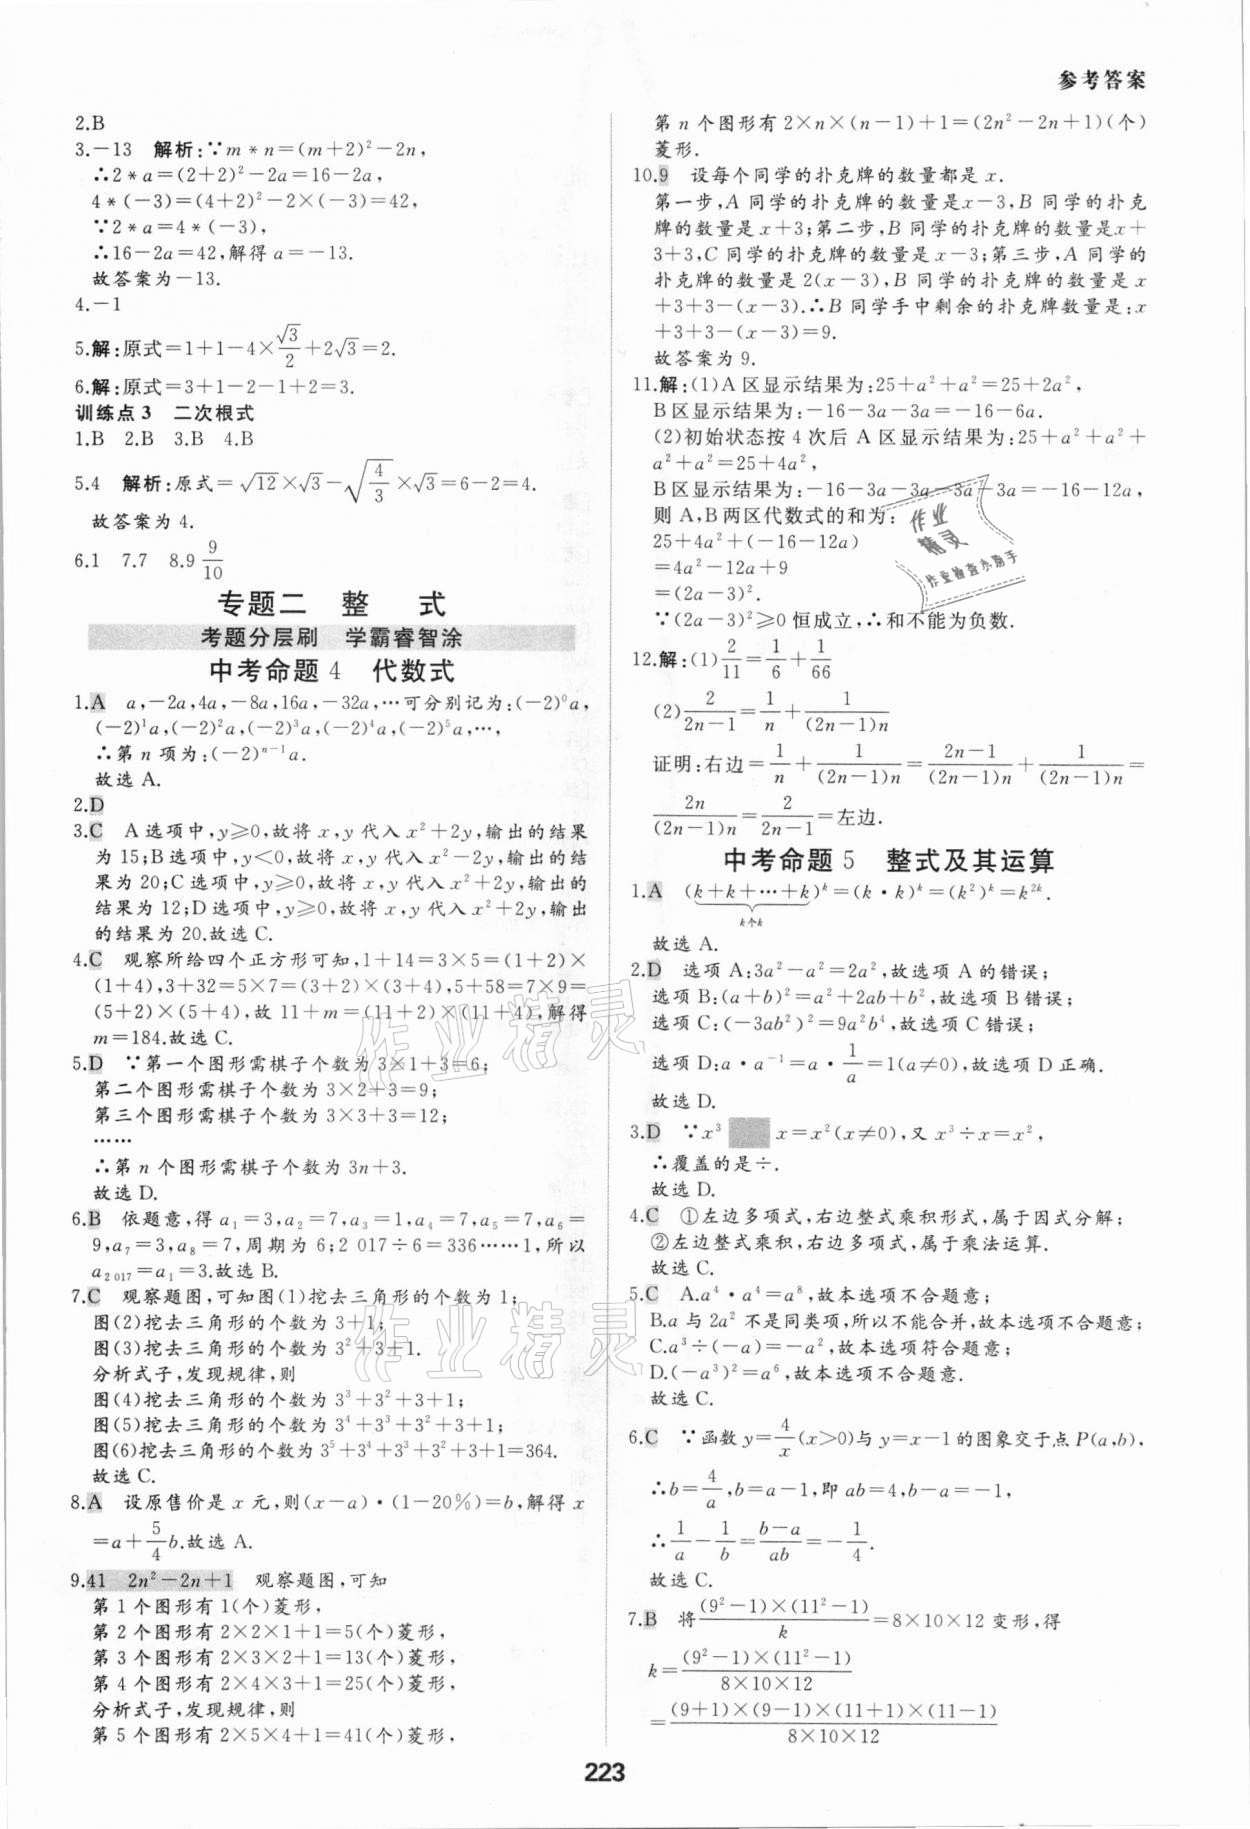 参考答案
2.B
3.－13　解析:∵m*n＝(m＋2)²－2n,
∴2*a＝(2＋2)²－2a＝16－2a,
4*(－3)＝(4＋2)²－2×(－3)＝42,
∵2*a＝4*(－3),
∴16－2a＝42,解得a＝－13.
故答案为－13.
4.－1
5.解:原式＝1＋1－4×√3/2＋2√3＝2.
6.解:原式＝3＋1－2－1＋2＝3.
训练点3　二次根式
1.B　2.B　3.B　4.B
5.4　解析:原式＝√12×√3－√(4/3)×√3＝6－2＝4.
故答案为4.
6.1　7.7　8.9 9/10
专题二　整　式
考题分层刷　学霸睿智涂
中考命题4　代数式
1.A　a,－2a,4a,－8a,16a,－32a,…可分别记为:(－2)⁰a,
(－2)¹a,(－2)²a,(－2)³a,(－2)⁴a,(－2)⁵a,…,
∴第n项为:(－2)ⁿ⁻¹a.
故选A.
2.D
3.C　A选项中,y≥0,故将x,y代入x²＋2y,输出的结果
为15;B选项中,y<0,故将x,y代入x²－2y,输出的结
果为20;C选项中,y≥0,故将x,y代入x²＋2y,输出的
结果为12;D选项中,y≥0,故将x,y代入x²＋2y,输出
的结果为20.故选C.
4.C　观察所给四个正方形可知,1＋14＝3×5＝(1＋2)×
(1＋4),3＋32＝5×7＝(3＋2)×(3＋4),5＋58＝7×9＝
(5＋2)×(5＋4),故11＋m＝(11＋2)×(11＋4),解得
m＝184.故选C.
5.D　∵第一个图形需棋子个数为3×1＋3＝6;
第二个图形需棋子个数为3×2＋3＝9;
第三个图形需棋子个数为3×3＋3＝12;
……
∴第n个图形需棋子个数为3n＋3.
故选D.
6.B　依题意,得a₁＝3,a₂＝7,a₃＝1,a₄＝7,a₅＝7,a₆＝
9,a₇＝3,a₈＝7,周期为6;2 017÷6＝336……1,所以
a₂₀₁₇＝a₁＝3.故选B.
7.C　观察题图,可知图(1)挖去三角形的个数为1;
图(2)挖去三角形的个数为3＋1;
图(3)挖去三角形的个数为3²＋3＋1.
分析式子,发现规律,则
图(4)挖去三角形的个数为3³＋3²＋3＋1;
图(5)挖去三角形的个数为3⁴＋3³＋3²＋3＋1;
图(6)挖去三角形的个数为3⁵＋3⁴＋3³＋3²＋3＋1＝364.
故选C.
8.A　设原售价是x元,则(x－a)·(1－20%)＝b,解得x
＝a＋5/4b.故选A.
9.41　2n²－2n＋1　观察题图,可知
第1个图形有1(个)菱形,
第2个图形有2×2×1＋1＝5(个)菱形,
第3个图形有2×3×2＋1＝13(个)菱形,
第4个图形有2×4×3＋1＝25(个)菱形,
分析式子,发现规律,则
第5个图形有2×5×4＋1＝41(个)菱形,
第n个图形有2×n×(n－1)＋1＝(2n²－2n＋1)(个)
菱形.
10.9　设每个同学的扑克牌的数量都是x.
第一步,A同学的扑克牌的数量是x－3,B同学的扑克
牌的数量是x＋3;第二步,B同学的扑克牌的数量是x＋
3＋3,C同学的扑克牌的数量是x－3;第三步,A同学的
扑克牌的数量是2(x－3),B同学的扑克牌的数量是x
＋3＋3－(x－3).∴B同学手中剩余的扑克牌数量是:x
＋3＋3－(x－3)＝9.
故答案为9.
11.解:(1)A区显示结果为:25＋a²＋a²＝25＋2a²,
B区显示结果为:－16－3a－3a＝－16－6a.
(2)初始状态按4次后A区显示结果为:25＋a²＋a²＋
a²＋a²＝25＋4a²,
B区显示结果为:－16－3a－3a－3a－3a＝－16－12a,
则A,B两区代数式的和为:
25＋4a²＋(－16－12a)
＝4a²－12a＋9
＝(2a－3)².
∵(2a－3)²≥0恒成立,∴和不能为负数.
12.解:(1)2/11＝1/6＋1/66
(2)2/(2n－1)＝1/n＋1/((2n－1)n)
证明:右边＝1/n＋1/((2n－1)n)＝(2n－1)/((2n－1)n)＋1/((2n－1)n)＝
2n/((2n－1)n)＝2/(2n－1)＝左边.
中考命题5　整式及其运算
1.A　(k＋k＋…＋k)ᵏ＝(k·k)ᵏ＝(k²)ᵏ＝k²ᵏ.
k个k
故选A.
2.D　选项A:3a²－a²＝2a²,故选项A的错误;
选项B:(a＋b)²＝a²＋2ab＋b²,故选项B错误;
选项C:(－3ab²)²＝9a²b⁴,故选项C错误;
选项D:a·a⁻¹＝a·1/a＝1(a≠0),故选项D正确.
故选D.
3.D　∵x³ x＝x²(x≠0),又x³÷x＝x²,
∴覆盖的是÷.
故选D.
4.C　①左边多项式,右边整式乘积形式,属于因式分解;
②左边整式乘积,右边多项式,属于乘法运算.
故选C.
5.C　A.a⁴·a⁴＝a⁸,故本选项不合题意;
B.a与2a²不是同类项,所以不能合并,故本选项不合题意;
C.a³÷(－a)＝－a²,故本选项符合题意;
D.(－a³)²＝a⁶,故本选项不合题意.
故选C.
6.C　∵函数y＝4/x(x>0)与y＝x－1的图象交于点P(a,b),
∴b＝4/a,b＝a－1,即ab＝4,b－a＝－1,
∴1/a－1/b＝(b－a)/ab＝－1/4.
故选C.
7.B　将((9²－1)×(11²－1))/k＝8×10×12变形,得
k＝((9²－1)×(11²－1))/(8×10×12)
＝((9＋1)×(9－1)×(11＋1)×(11－1))/(8×10×12)
223
作业精灵
作业检查小助手
作业精灵
作业精灵